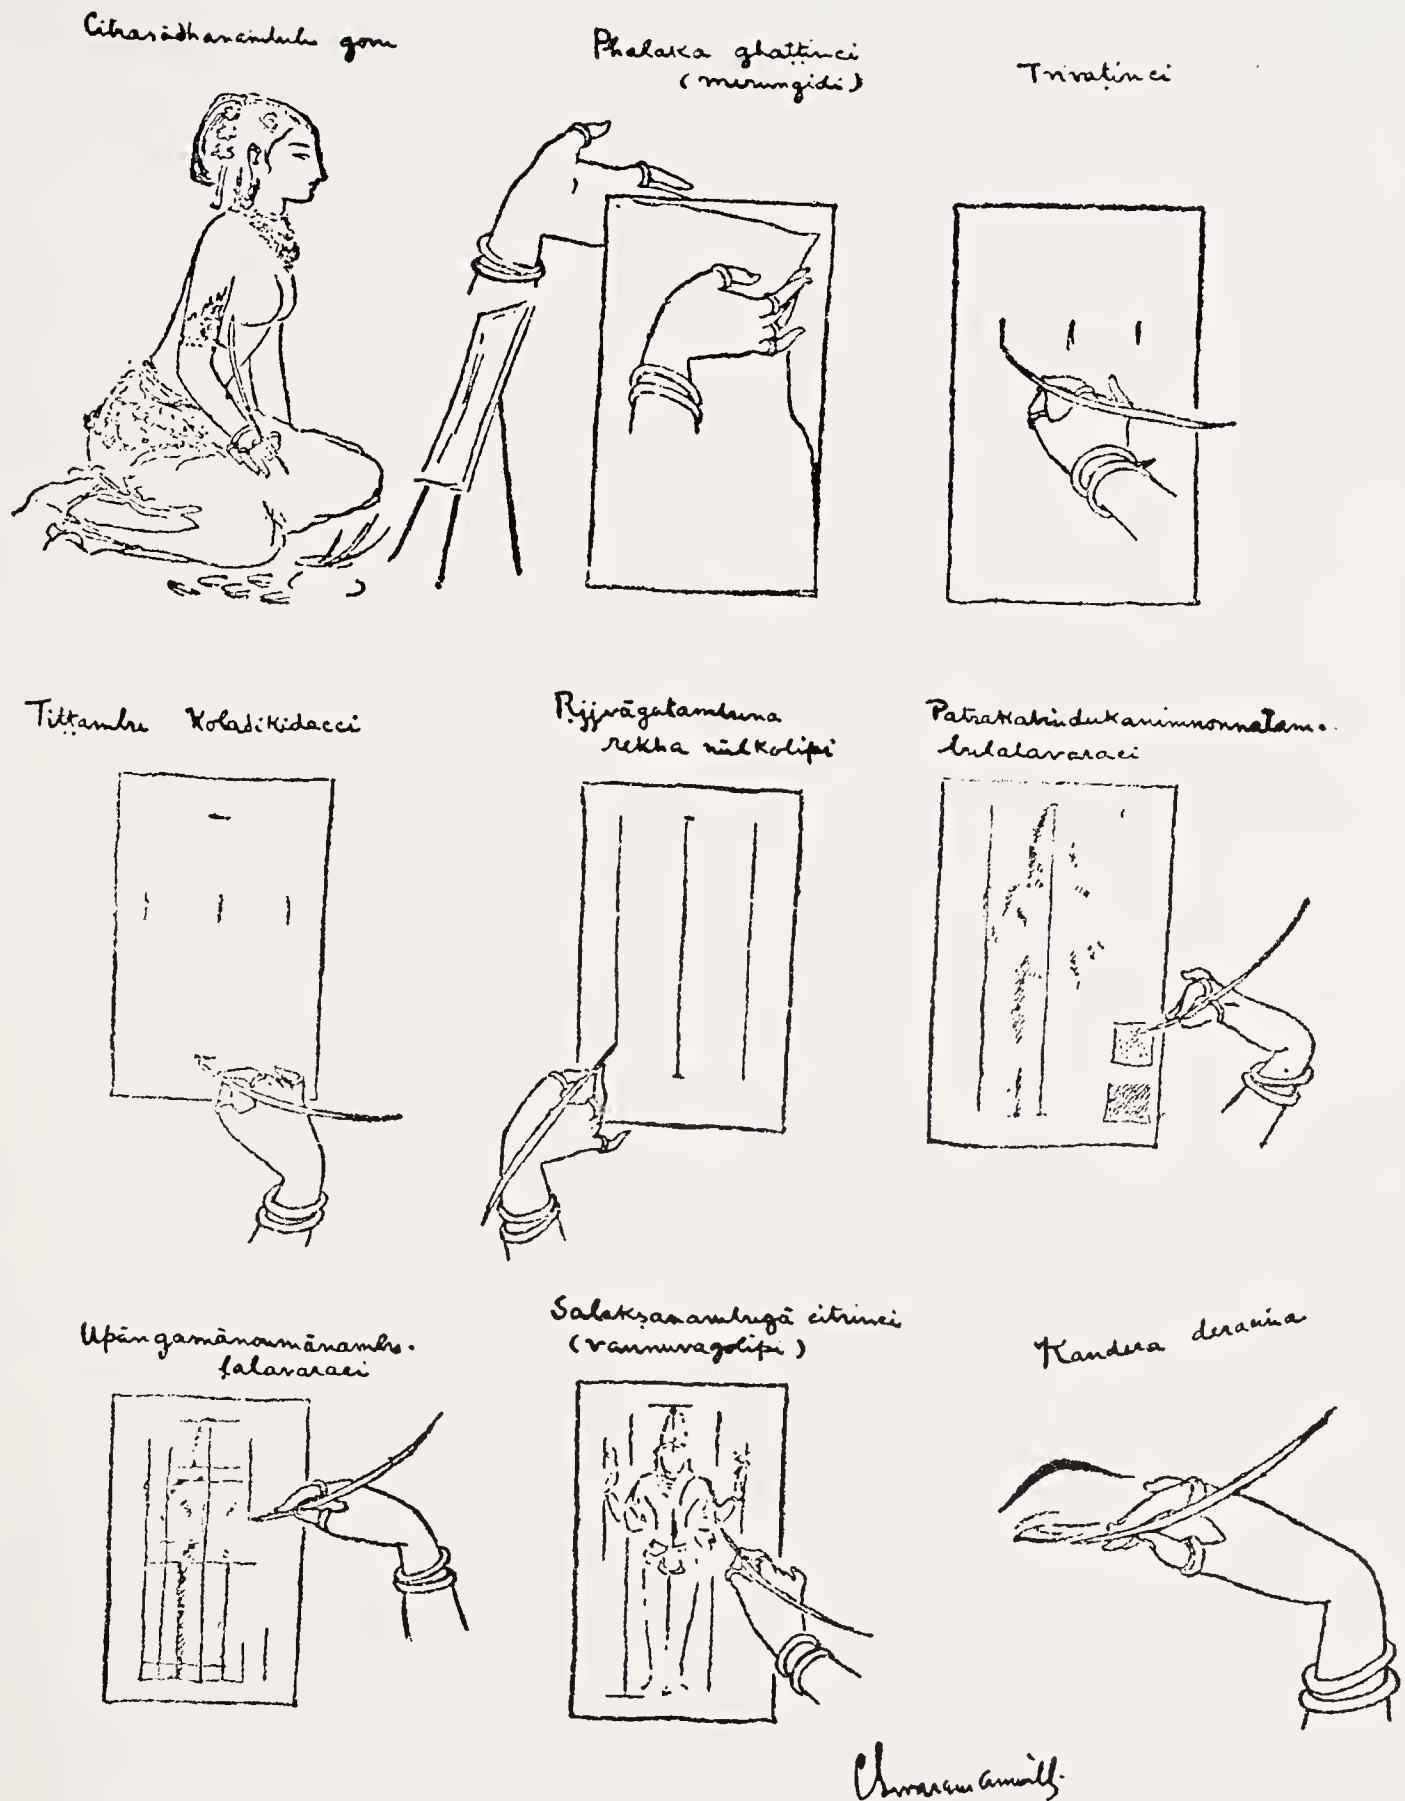 Citrasādhanambulu gonu
Phalaka ghaṭṭinci
(merungidi)
Trivaṭinci
Tiṭṭambu Koladikidacci
Ṛjjvāgatambuna
rekha nūlkolipi
Patrakabindukanimnonnatam-
bulalavaraci
Upāngamānonmānambu-
lalavaraci
Salakṣanambugā citrinci
(vannuvagolipi)
Kandera deracina
CSivaramamurti.